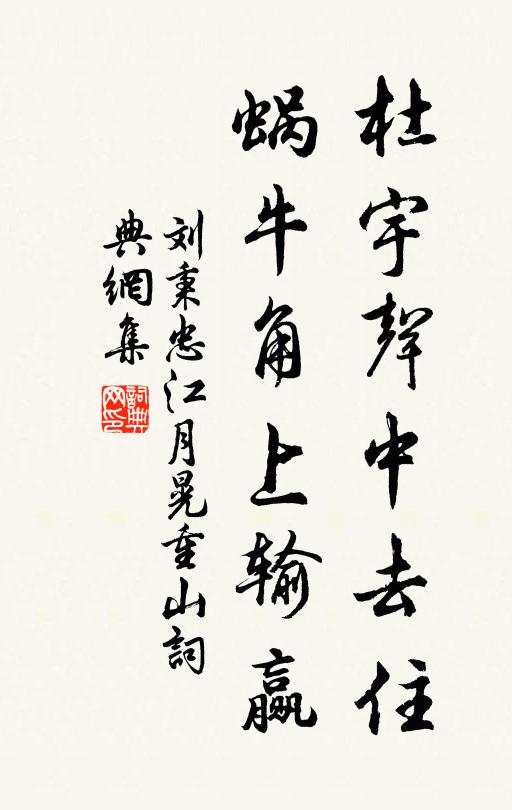 杜宇聲中去住
蜗牛角上输赢
刘秉忠江月晃重山詞
典網集
詞典
网印